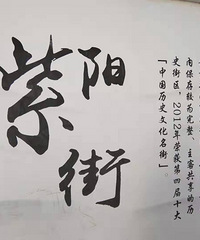 紫阳街
内保存较为完整、主客共享的历
史街区，2012年荣获第四届十大
「中国历史文化名街」